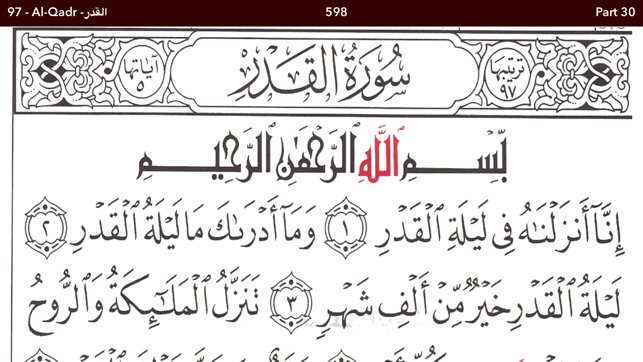 97 - Al-Qadr -القدر 598 Part 30
ترتيبها ٩٧ سُورَةُ القَدْرِ آياتها ٥
بِّسْمِ اللَّهِ الرَّحْمَٰنِ الرَّحِيمِ
إِنَّآ أَنزَلْنَٰهُ فِى لَيْلَةِ ٱلْقَدْرِ ١ وَمَآ أَدْرَىٰكَ مَا لَيْلَةُ ٱلْقَدْرِ ٢
لَيْلَةُ ٱلْقَدْرِ خَيْرٌ مِّنْ أَلْفِ شَهْرٍ ٣ تَنَزَّلُ ٱلْمَلَٰٓئِكَةُ وَٱلرُّوحُ